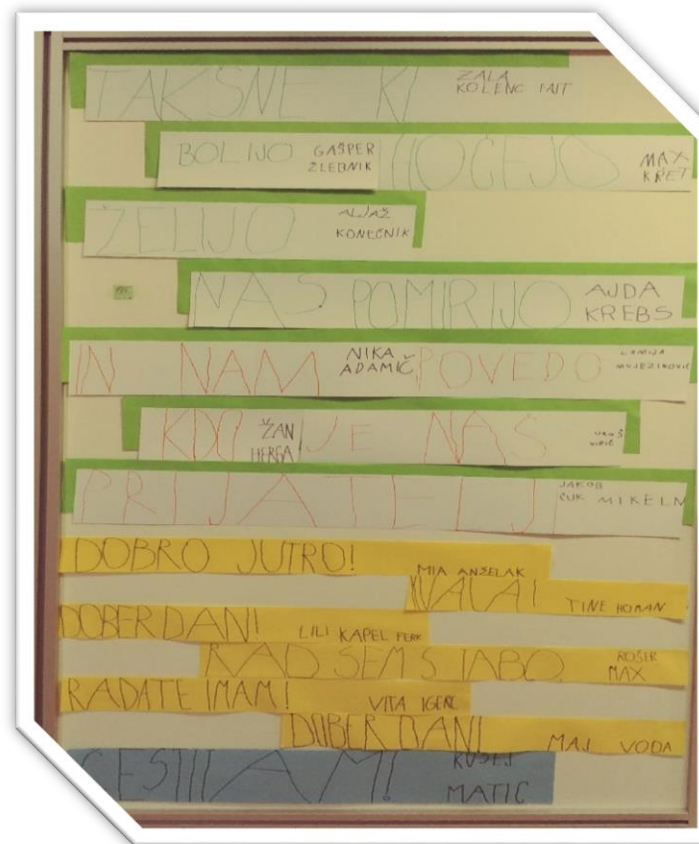 TAKŠNE KI ZALA KOLENC FAIT
BOLIJO GAŠPER ŽLEBNIK HOČEJO MAX KRET
ŽELIJO ALJAŽ KONEČNIK
NAS POMIRIJO AJDA KREBS
IN NAM NIKA ADAMIČ POVEDO LAMIJA
KDO ŽAN HERGA JE NAŠ
PRIJATELJ JAKOB ČUK MIKELN
DOBRO JUTRO! MIA ANŽELAK
HVALA! TINE HOMAN
DOBER DAN! LILI KAPEL FERK
RAD SEM S TABO. ROŠER MAX
RADATE IMAM! VITA IGERC
DOBER DAN! MAJ VODA
ČESTITAM! KUŠEJ MATIC